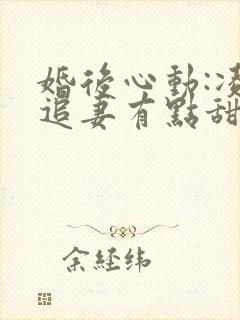 婚後心動:凌
追妻有點甜
余經緯